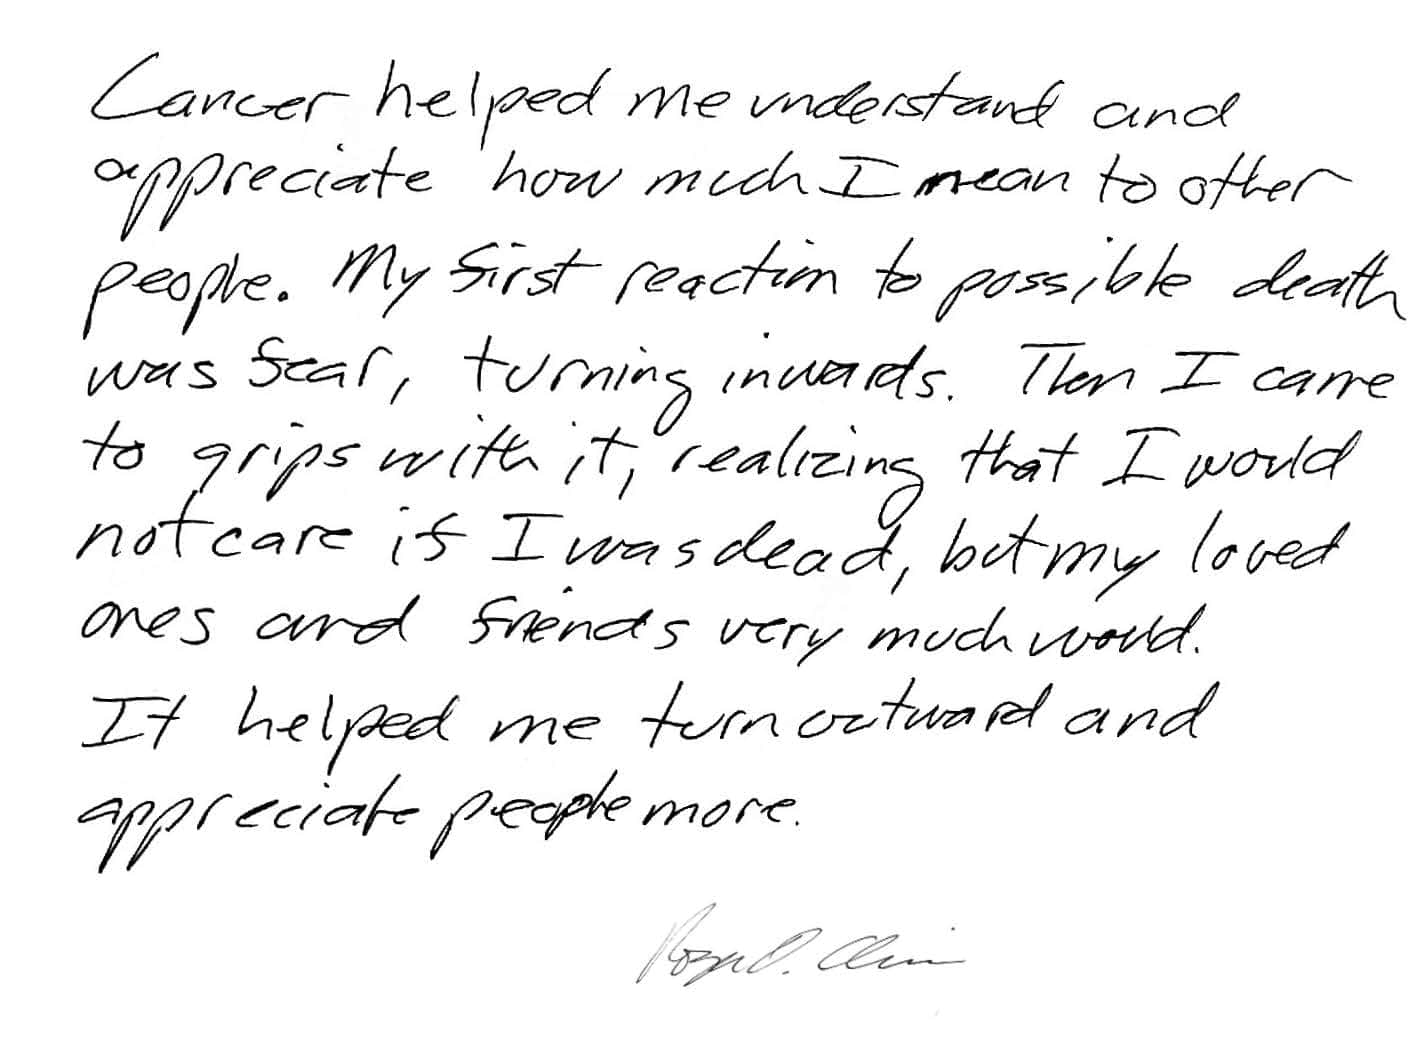 Cancer helped me understand and
appreciate how much I mean to other
people. My first reaction to possible death
was fear, turning inwards. Then I came
to grips with it, realizing that I would
not care if I was dead, but my loved
ones and friends very much would.
It helped me turn outward and
appreciate people more.